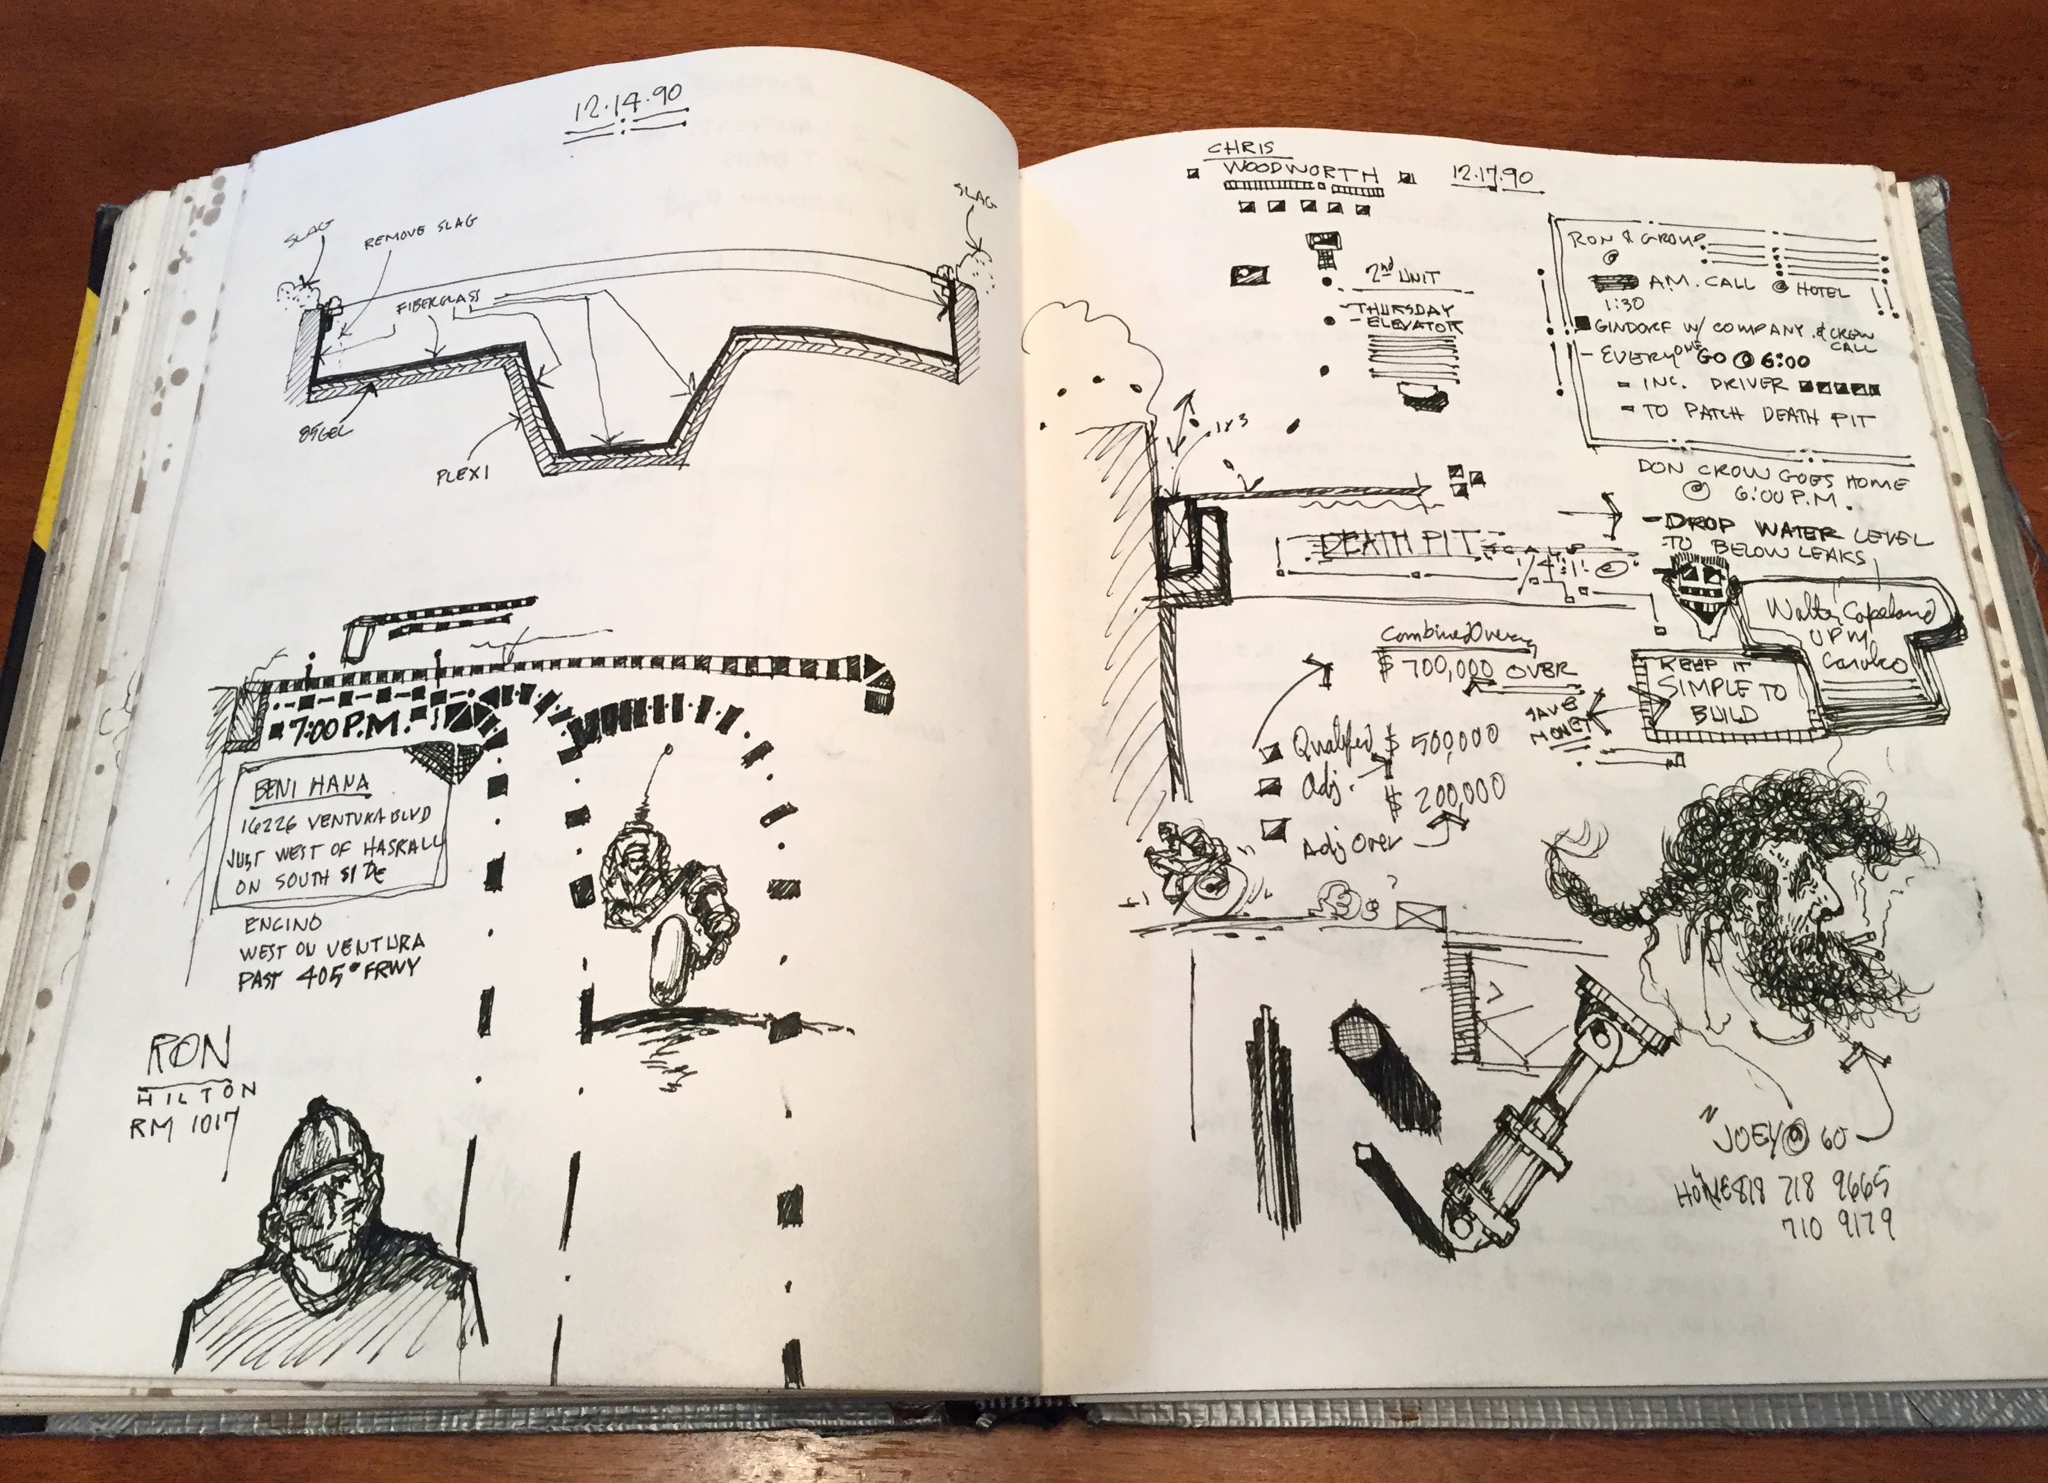 12.14.90
SLAG
REMOVE SLAG
SLAG
FIBERGLASS
PLEXI
7:00 P.M.
BENI HANA
16226 VENTURA BLVD
JUST WEST OF HASKALL
ON SOUTH SIDE
ENCINO
WEST ON VENTURA
PAST 405 FRWY
RON
HILTON
RM 1017
CHRIS
WOODWORTH
12.17.90
2nd UNIT
- THURSDAY
- ELEVATOR
RON & GROUP
@
A.M. CALL @ HOTEL !!
1:30
GINDORF W/ COMPANY & CREW
CALL
- EVERYONE GO @ 6:00
- INC. DRIVER
- TO PATCH DEATH PIT
DON CROW GOES HOME
@ 6:00 P.M.
- DROP WATER LEVEL
TO BELOW LEAKS
1x3
DEATH PIT
SCALE
1/4"=1'
Walter Copeland
UPM
Carolco
KEEP IT
SIMPLE TO
BUILD
SAVE
MONEY
Combined Over
$700,000 OVER
Qualified $500,000
Adj. $200,000
Adj Over
JOEY @ 60
HOME 818 718 9665
710 9179